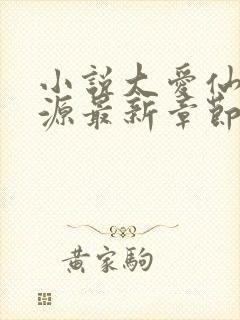 小說大愛仙
源最新章節
黄家駒